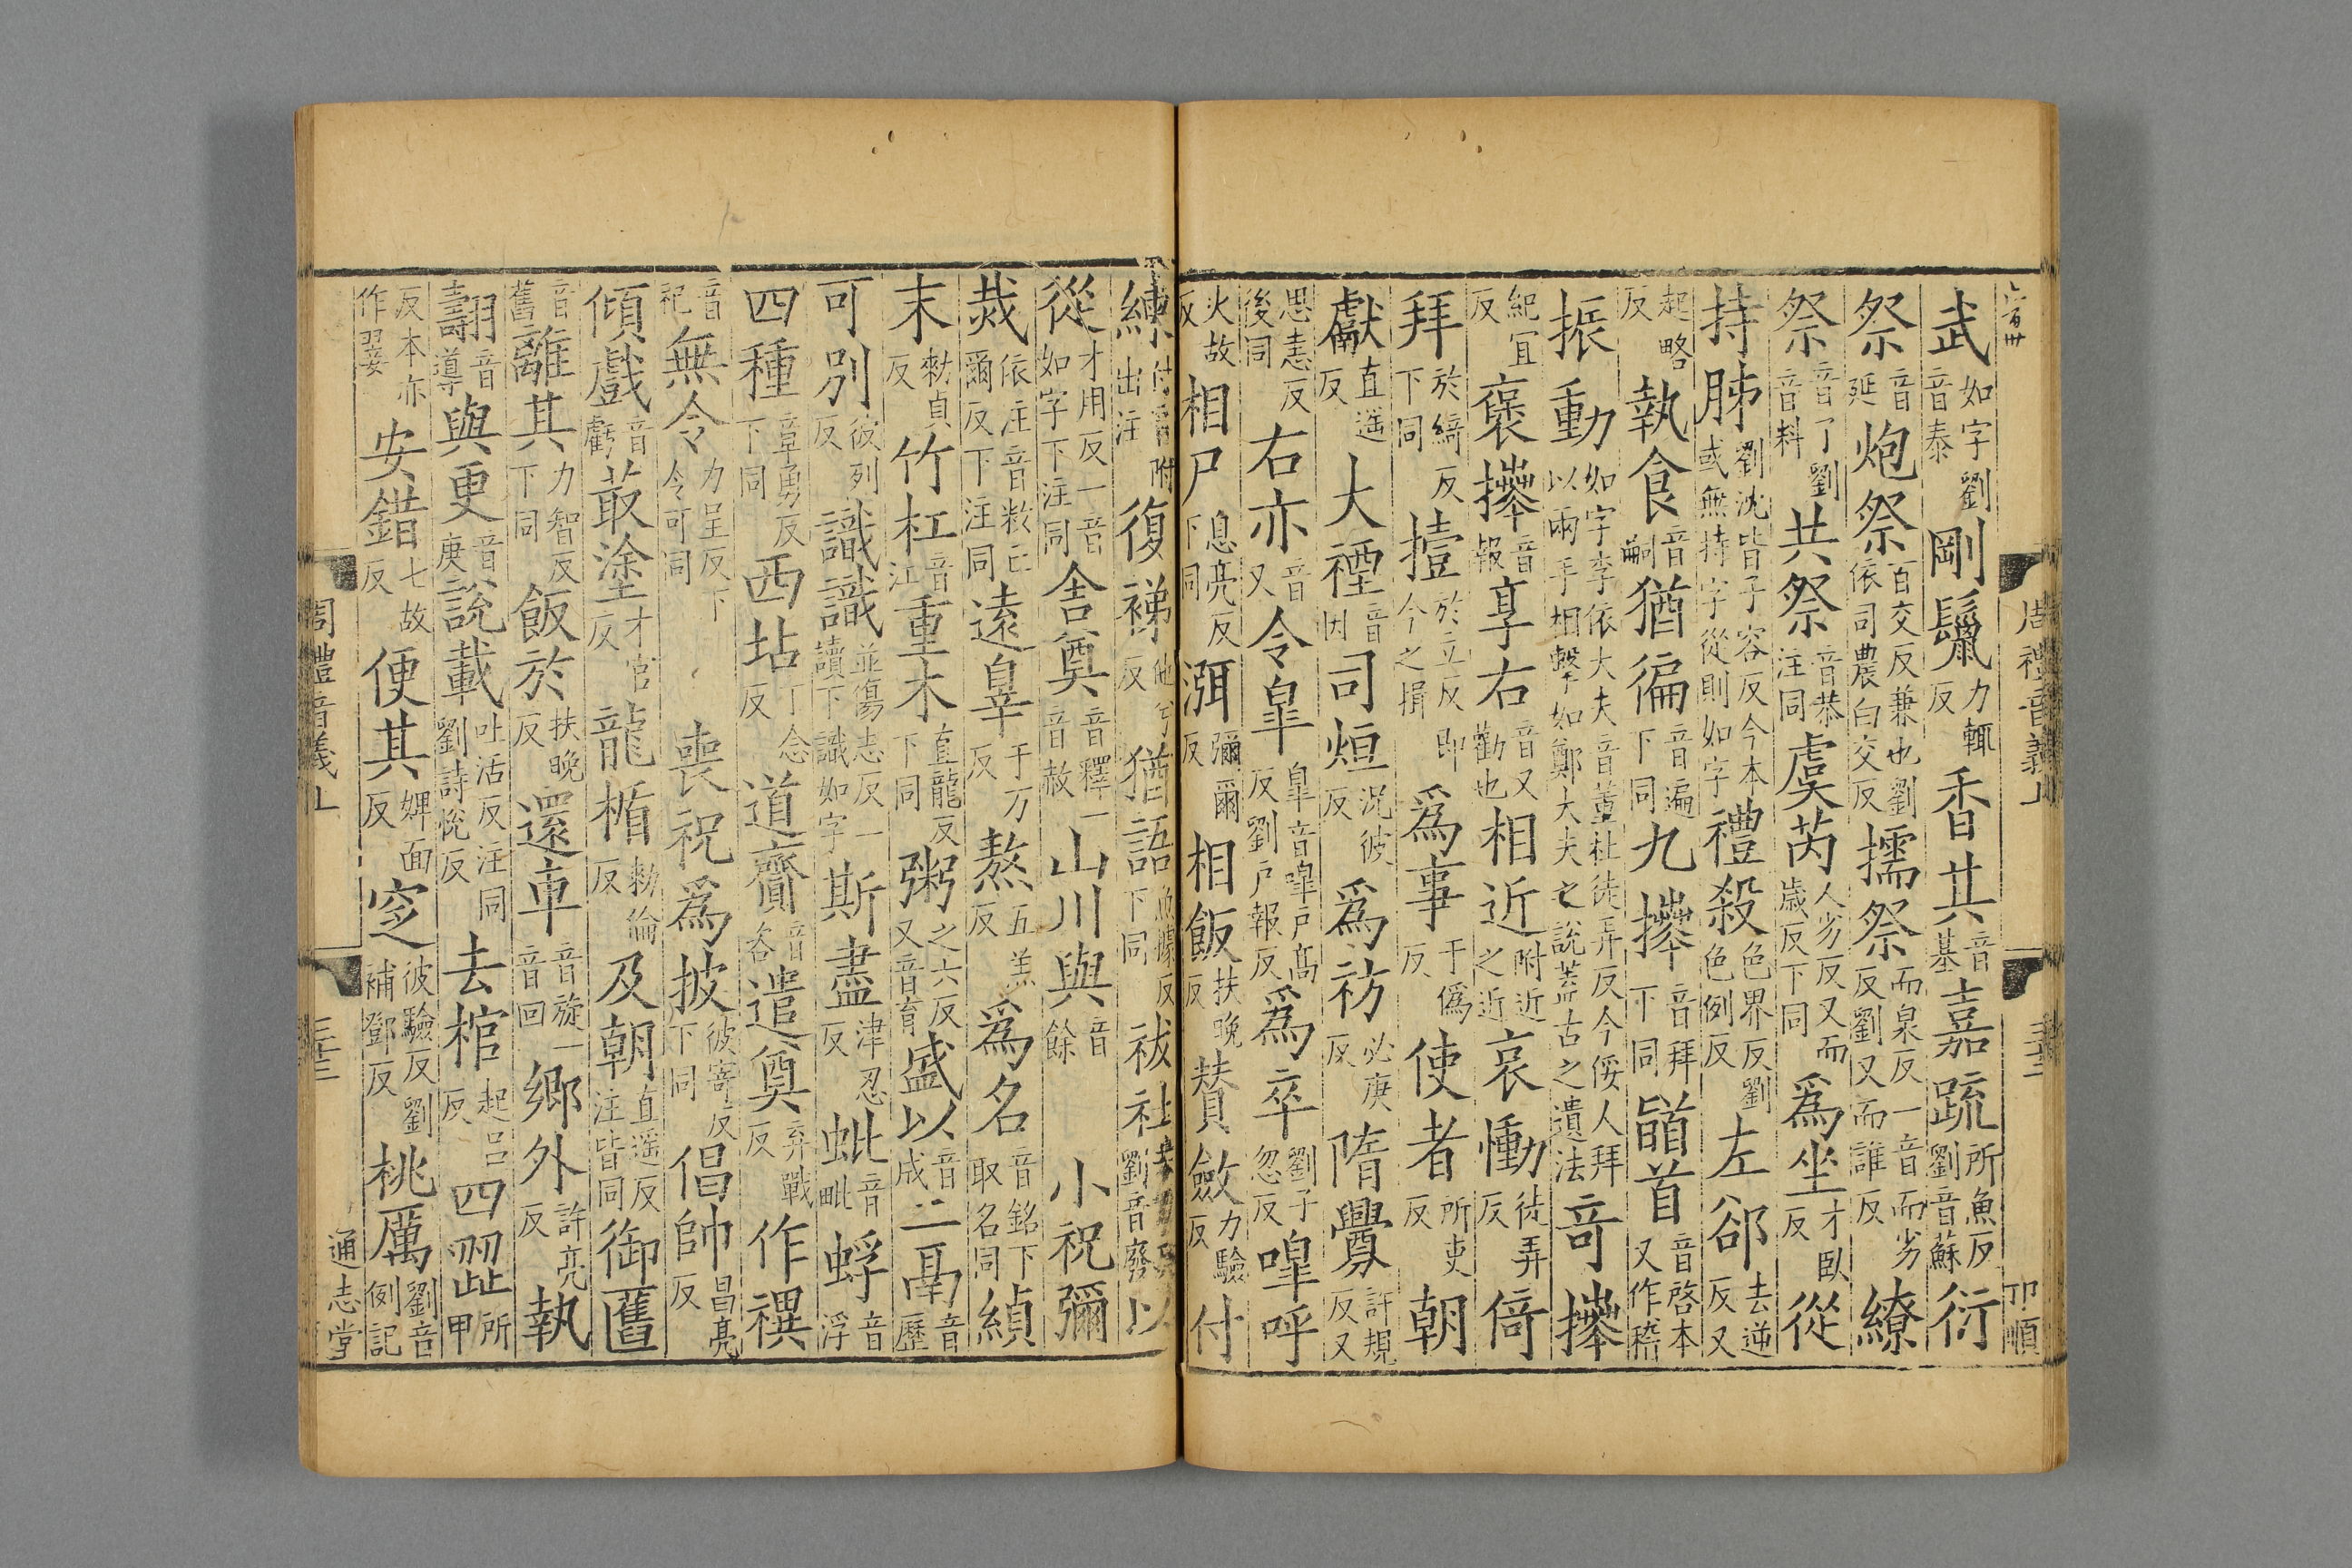 武如字劉音泰剛鬣力輒反香萁音基嘉疏所魚反劉音蘇衍
祭音延炮祭百交反兼也劉依司農白交反擩祭而泉反一音而劣反劉又而誰反繚
祭音了劉音料共祭音恭注同虞芮人劣反又而歲反下同爲坐才臥反從
持胏劉沈皆子容反今本或無持字從則如字禮殺色界反劉色例反左郤去逆反又
起略反執食音嗣猶徧音遍下同九𢷎音拜下同䭫首音啓本又作稽
振動如字李依大夫音董杜徒弄反今倭人拜以兩手相擊如鄭大夫之說蓋古之遺法奇𢷎
紀宜反褒𢷎音報享右音又勸也相近附近之近哀慟徒弄反倚
拜於綺反下同撎於立反即今之揖爲事于僞反使者所吏反朝
獻直遥反大禋音因司烜況彼反爲祊必庚反隋釁許規反又
思恚反後同右亦音又令皋皋音嘷戸高反劉戸報反爲卒劉子忽反嘷呼
火故反相尸息亮反下同渳彌爾反相飯扶晚反贊斂力驗反付
練付音附出注復褅他兮反猶語魚據反下同祓社劉音廢以
從才用反一音如字下注同舍奠音釋一音赦山川與音餘小祝彌
烖依注音敉亡爾反下注同遠辠于万反熬五羔反爲名音銘下取名同䞓
末勑貞反竹杠音江重木直龍反下同粥之六反又音育盛以音成二鬲音歷
可別彼列反識識並傷志反一讀下識如字斯盡津忍反蚍音毗蜉音浮
四種章勇反下同西坫丁念反道齎音咨遣奠弃戰反作禩
音祀無令力呈反下令可同喪祝爲披彼寄反下同倡帥昌亮反
傾戲音虧菆塗才官反龍楯勑倫反及朝直遥反注皆同御匶
音舊離其力智反下同飯於扶晚反還車音旋一音回鄉外許亮反執
翿音導與更音庚說載吐活反注同劉詩恱反去棺起呂反四歰所甲
反本亦作翣安錯七故反便其婢面反窆彼驗反劉補鄧反桃厲劉音例記
周禮音義上
三十三
通志堂
周禮音義上
卭順